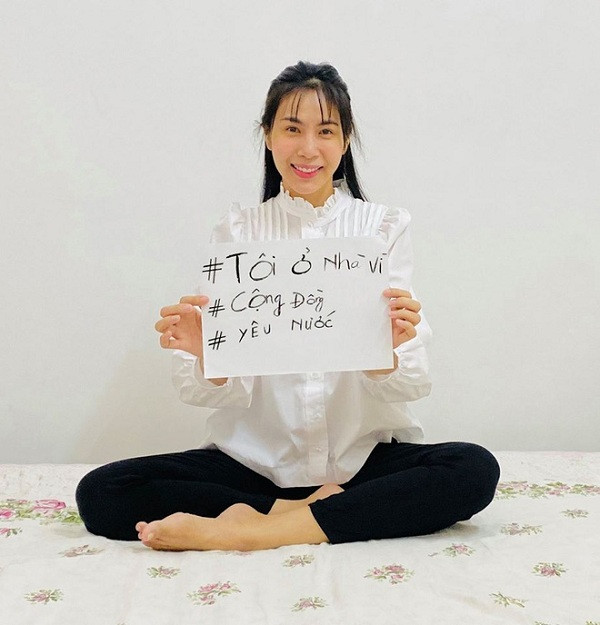 #Tôi ở Nhà Vì
# Cộng Đồng
# YÊU NƯỚC